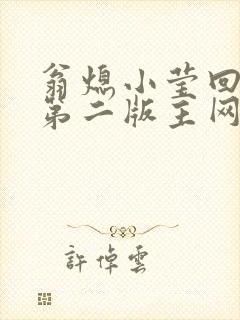 翁熄小莹回
第二版主网
許倬雲